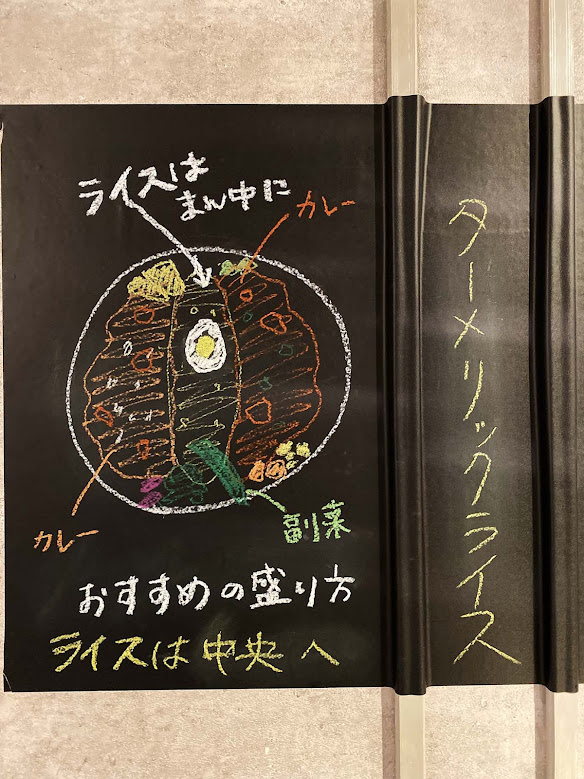 ライスは
まん中に
カレー
カレー
副菜
おすすめの盛り方
ライスは中央へ
ターメリックライス